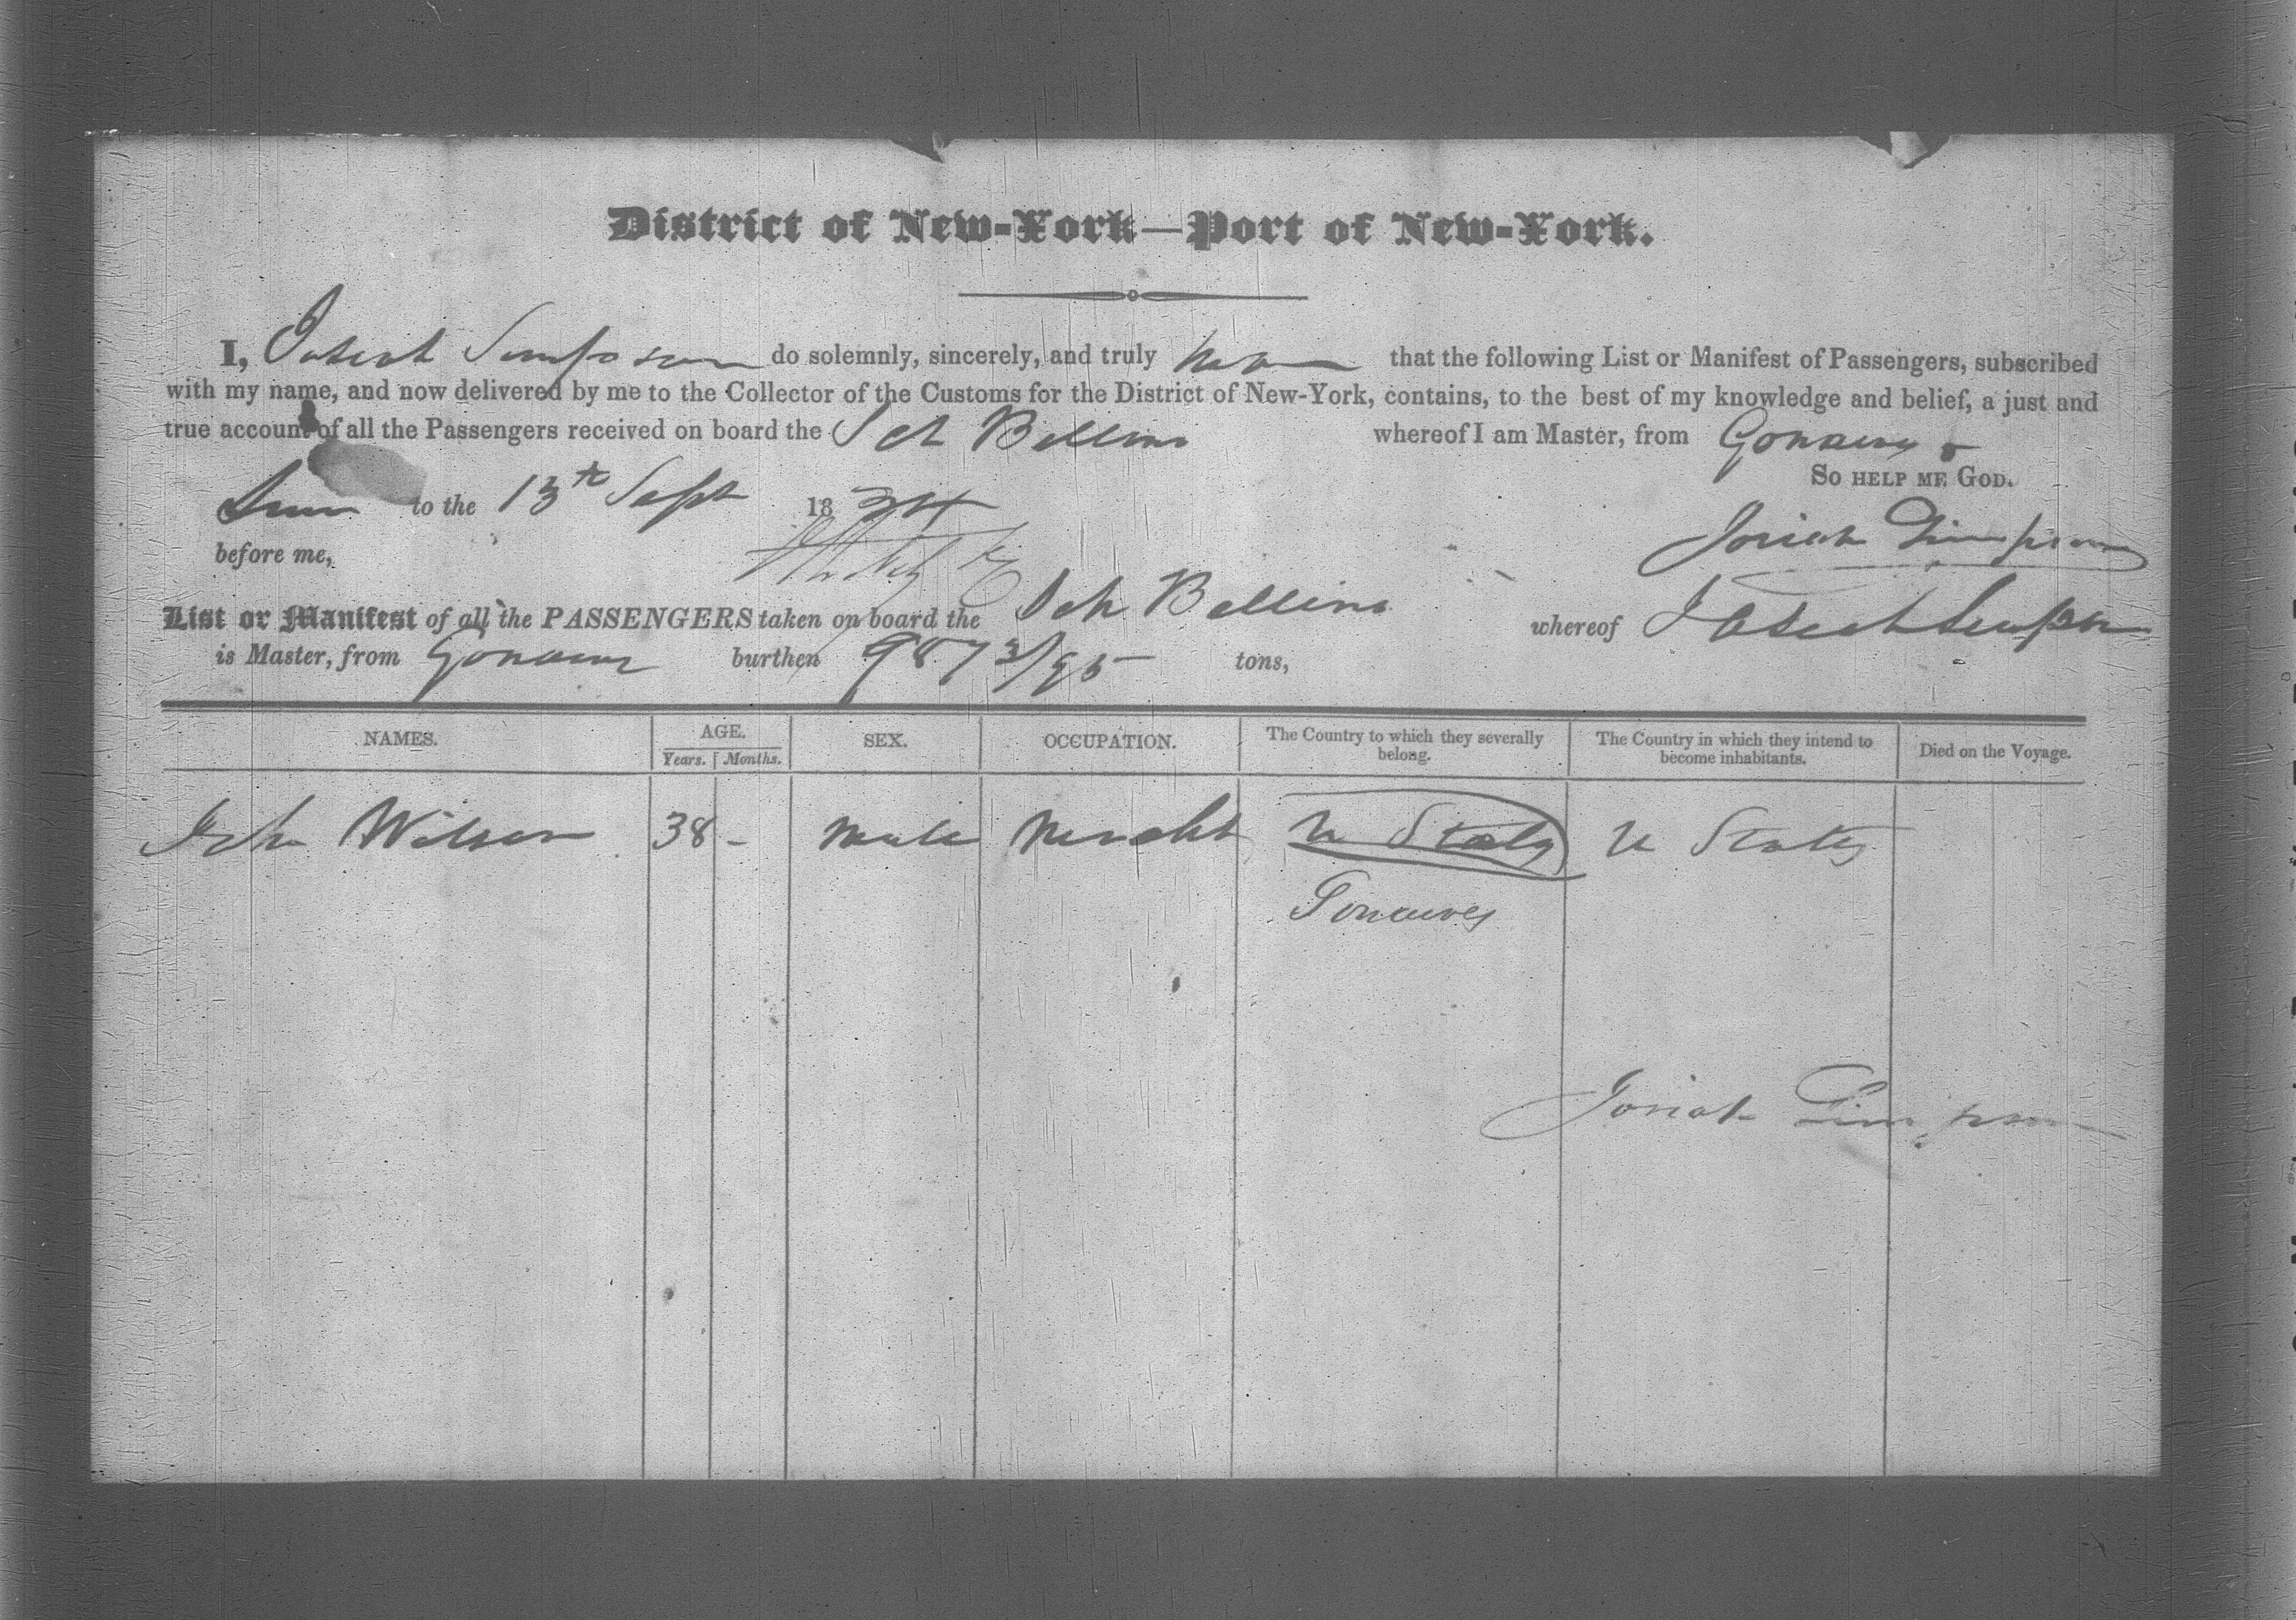 District of New-York—Port of New-York.
I, Simpson do solemnly, sincerely, and truly that the following List or Manifest of Passengers, subscribed
with my name, and now delivered by me to the Collector of the Customs for the District of New-York, contains, to the best of my knowledge and belief, a just and
true account of all the Passengers received on board the Sch whereof I am Master, from
So help me God.
to the 13th Sept 18
Josiah Simpson
before me,
List or Manifest of all the PASSENGERS taken on board the Sch whereof Simpson
is Master, from burthen tons,
NAMES. AGE. SEX. OCCUPATION. The Country to which they severally belong. The Country in which they intend to become inhabitants. Died on the Voyage.
Years. Months.
John Wilson 38 - Male Mercht U States U States
Josiah Simpson